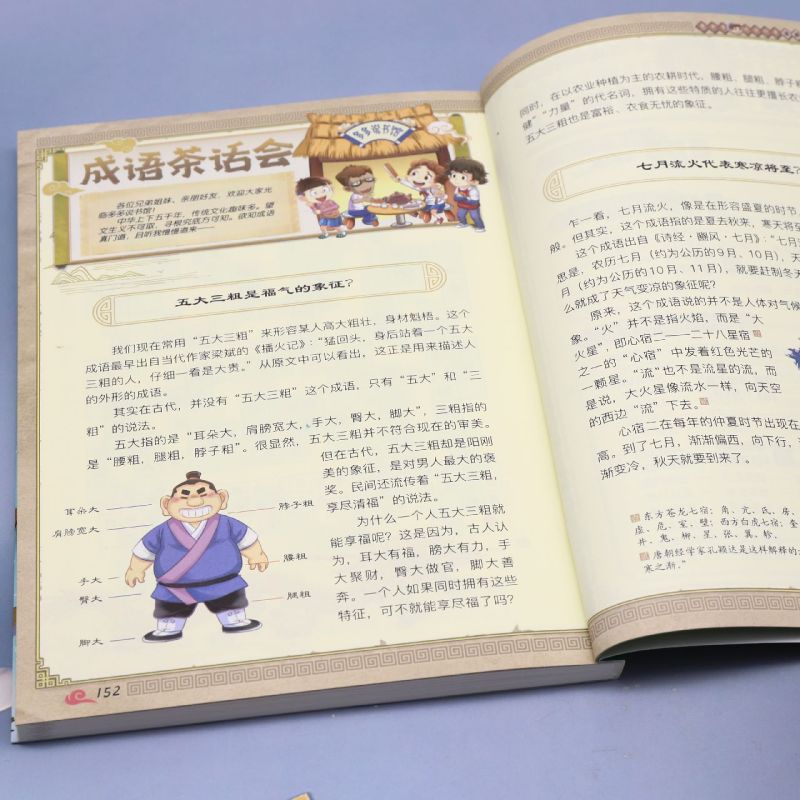 成语茶话会
多多说书馆
各位兄弟姐妹、亲朋好友，欢迎大家光
临多多说书馆！
中华上下五千年，传统文化趣味多。望
文生义不可取，寻根究底方可知。欲知成语
真门道，且听我慢慢道来——
五大三粗是福气的象征？
我们现在常用“五大三粗”来形容某人高大粗壮，身材魁梧。这个
成语最早出自当代作家梁斌的《播火记》：“猛回头，身后站着一个五大
三粗的人，仔细一看是大贵。”从原文中可以看出，这正是用来描述人
的外形的成语。
其实在古代，并没有“五大三粗”这个成语，只有“五大”和“三
粗”的说法。
五大指的是“耳朵大，肩膀宽大，手大，臀大，脚大”，三粗指的
是“腰粗，腿粗，脖子粗”。很显然，五大三粗并不符合现在的审美。
但在古代，五大三粗却是阳刚
美的象征，是对男人最大的褒
奖。民间还流传着“五大三粗，
享尽清福”的说法。
为什么一个人五大三粗就
能享福呢？这是因为，古人认
为，耳大有福，膀大有力，手
大聚财，臀大做官，脚大善
奔。一个人如果同时拥有这些
特征，可不就能享尽福了吗？
耳朵大
肩膀宽大
手大
臀大
脚大
脖子粗
腰粗
腿粗
152
同时，在以农业种植为主的农耕时代，腰粗、腿粗、脖子粗
健”“力量”的代名词，拥有这些特质的人往往更擅长农
五大三粗也是富裕、衣食无忧的象征。
七月流火代表寒凉将至？
乍一看，七月流火，像是在形容盛夏的时节
般。但其实，这个成语指的是夏去秋来，寒天将至
这个成语出自《诗经·豳风·七月》：“七月
思是，农历七月（约为公历的9月、10月），天
月（约为公历的10月、11月），就要赶制冬天
么就成了天气变凉的象征呢？
原来，这个成语说的并不是人体对气候
象。“火”并不是指火焰，而是“大
火星”，即心宿二——二十八星宿
之一的“心宿”中发着红色光芒的
一颗星。“流”也不是流星的流，而
是说，大火星像流水一样，向天空
的西边“流”下去。
心宿二在每年的仲夏时节出现在
高。到了七月，渐渐偏西，向下行，
渐变冷，秋天就要到来了。
东方苍龙七宿：角、亢、氐、房、
虚、危、室、壁；西方白虎七宿：奎
井、鬼、柳、星、张、翼、轸。
唐朝经学家孔颖达是这样解释的
寒之渐。”